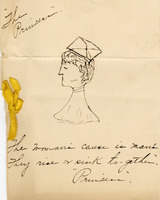 "The
Princess"
The woman's cause is man's
They rise or sink to-gether,
"Princess".